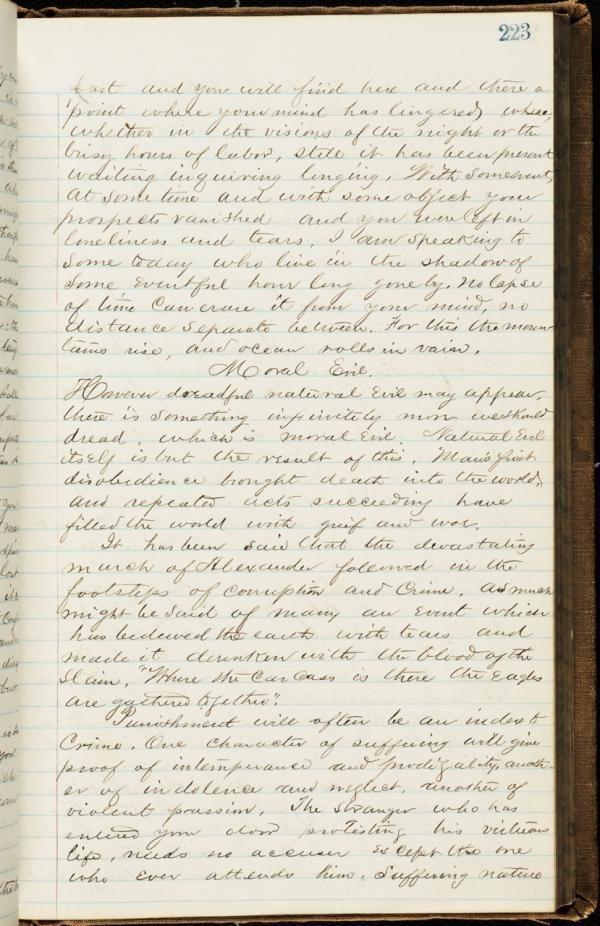 223
Past and you will find here and there a
point where your mind has lingered, where,
whether in the visions of the night or the
busy hours of labor, still it has been present
waiting inquiring linging. With some event,
at some time and with some object your
prospects vanished and you were left in
loneliness and tears. I am speaking to
some today who live in the shadow of
some Eventful hour long gone by. No lapse
of time can erase it from your mind, no
distance separate between. For this the moun
tains rise, and ocean rolls in vain.
Moral Evil.
However dreadful natural Evil may appear,
there is something infinitely more we should
dread, which is moral Evil. Natural Evil
itself is but the result of this. Man's first
disobedience brought death into the world,
and repeated acts succeeding have
filled the world with grief and woe.
It has been said that the devastating
march of Alexander followed in the
footsteps of corruption and Crime. As much
might be said of many an Event which
has bedewed the earth with tears and
made it drunken with the blood of the
slain. "Where the Carcass is there the Eagles
are gathered together".
Punishment will often be an index to
Crime. One character of suffering will give
proof of intemperance and prodigality, anoth-
er of indolence and neglect, another of
violent passion. The stranger who has
entered your door protesting his virtuous
life, needs no accuser except the one
who ever attends him. Suffering nature